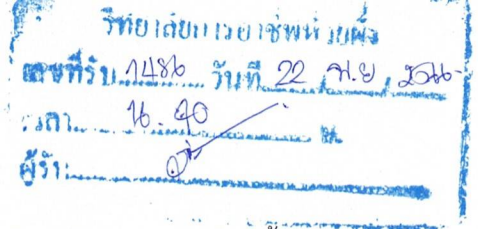 วิทยาลัยการอาชีพห้วยผึ้ง
เลขที่รับ 1486 วันที่ 22 พ.ย. 2566
เวลา 16.40 น.
ผู้รับ